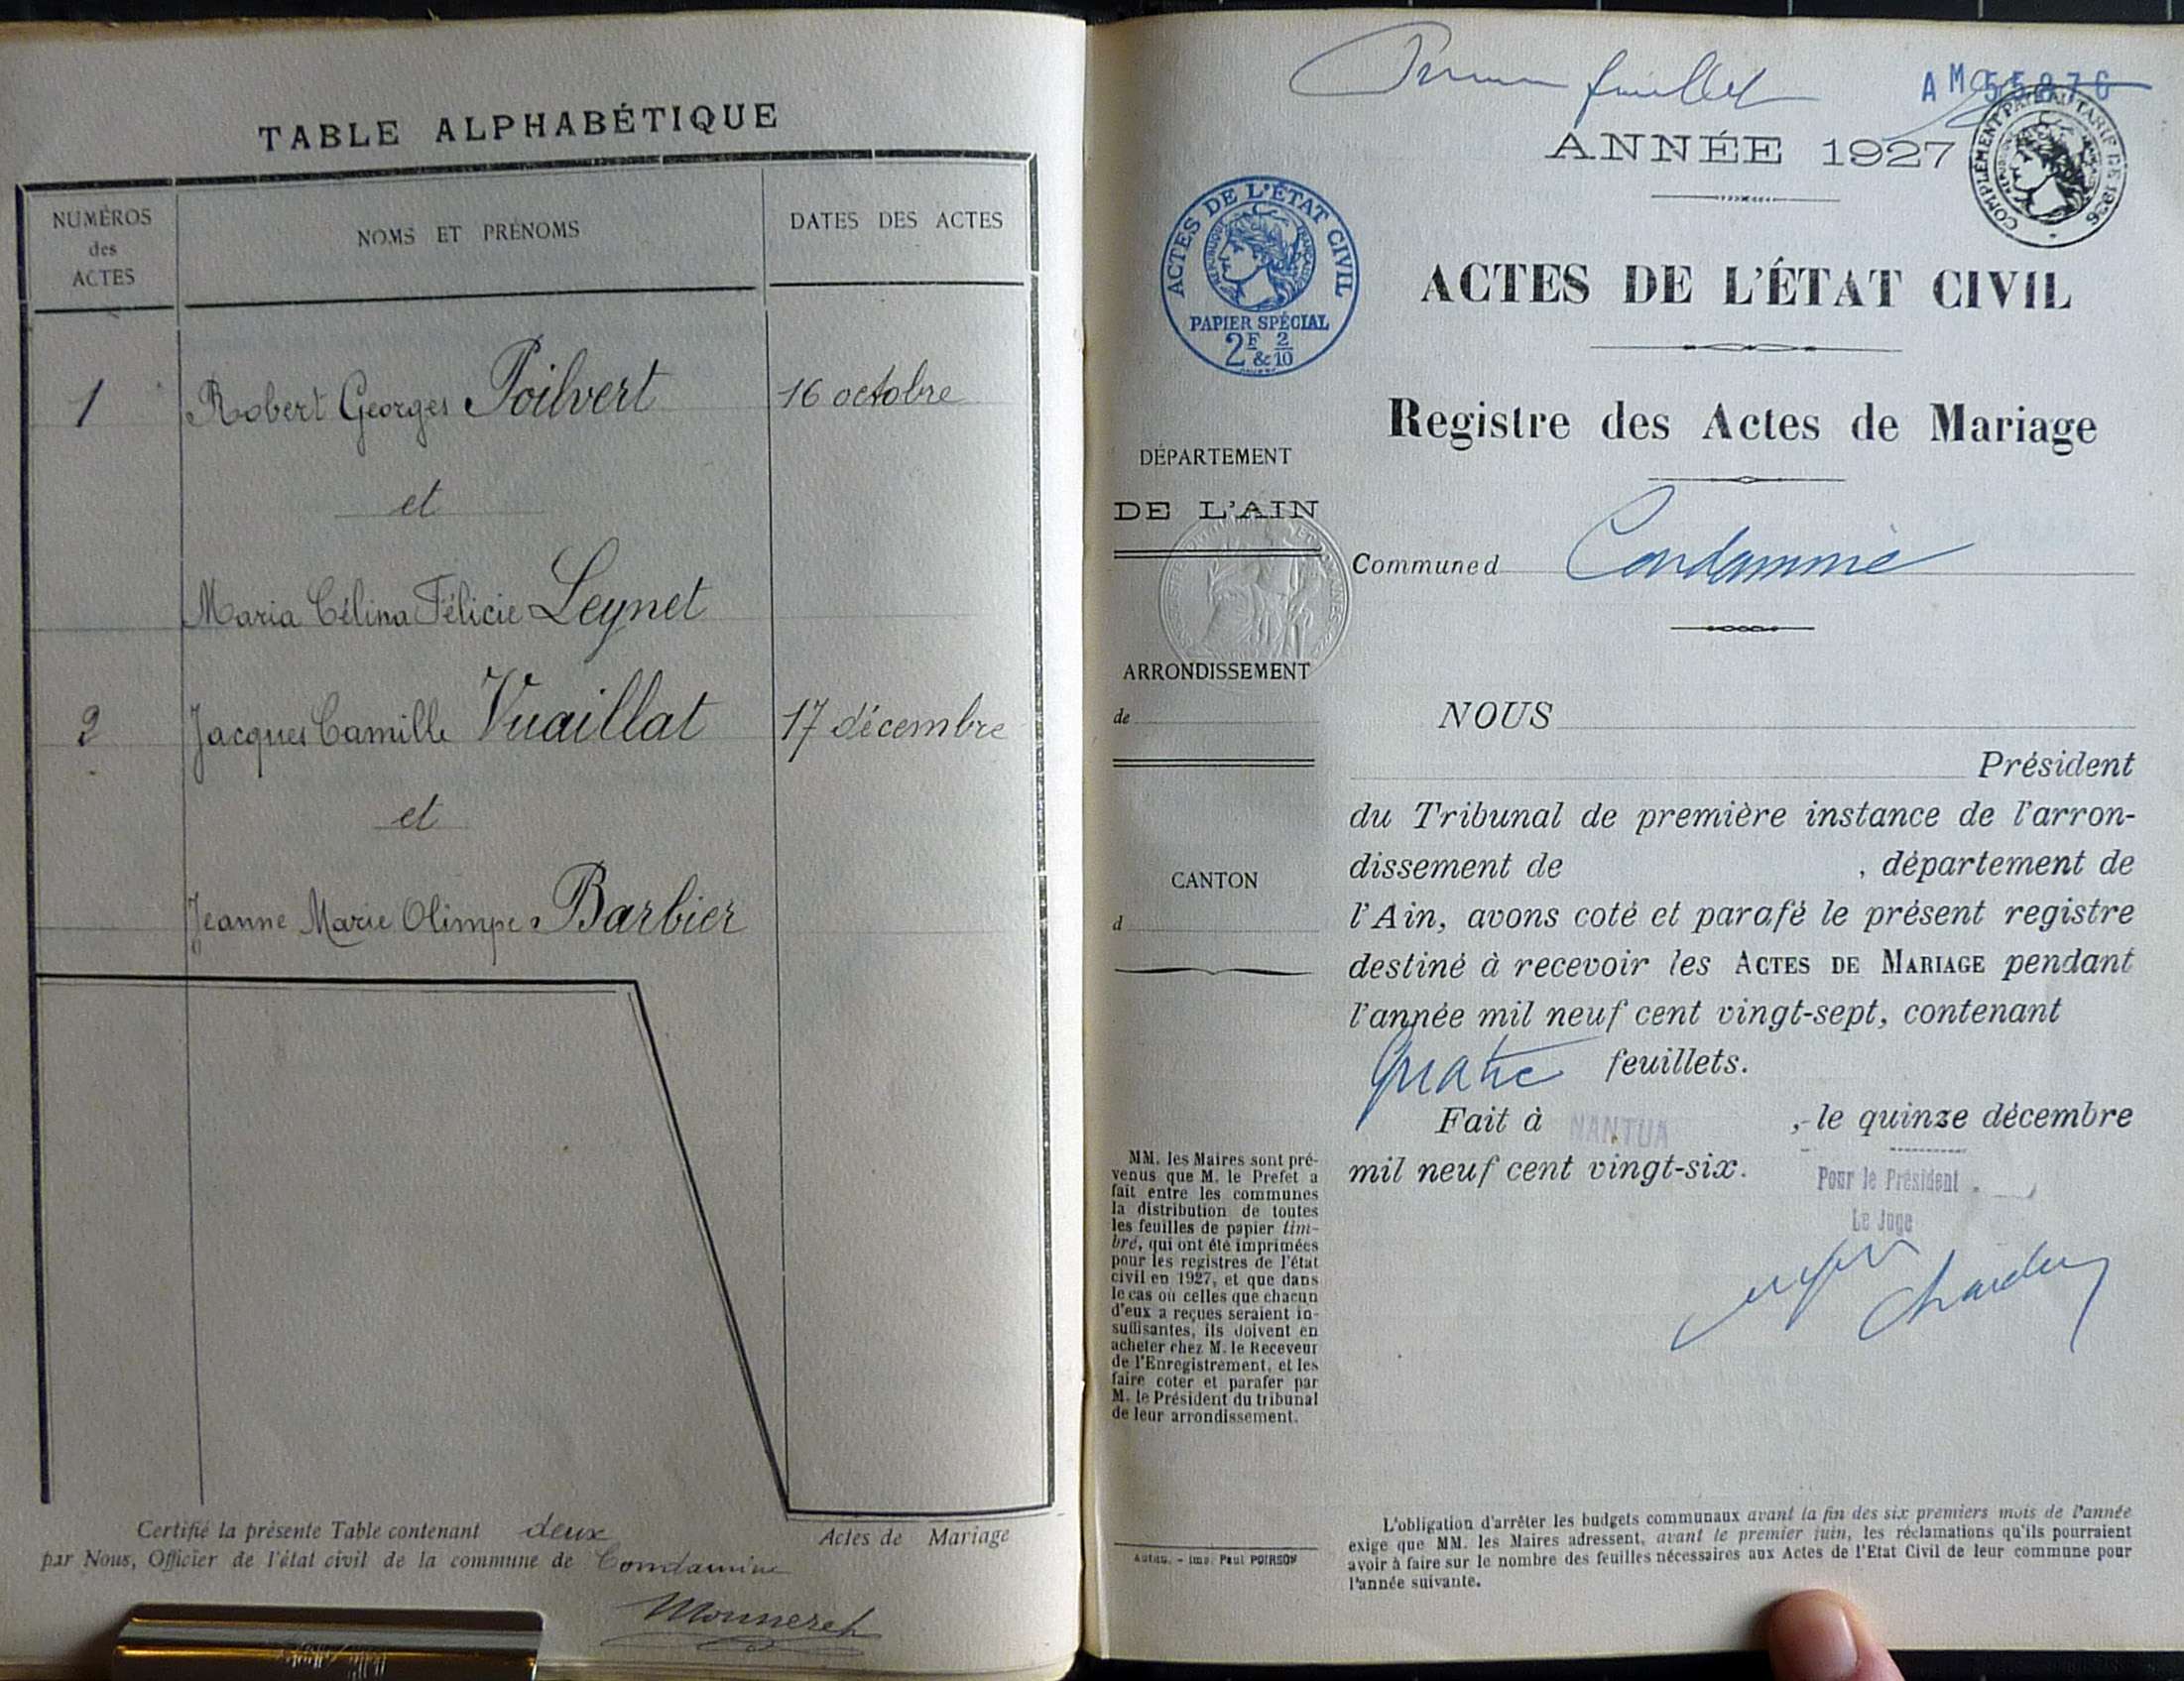 TABLE ALPHABÉTIQUE
NUMÉROS
des
ACTES
NOMS ET PRÉNOMS
DATES DES ACTES
1
Robert Georges Poilvert
16 octobre
et
Maria Célina Félicie Leynet
2
Jacques Camille Vuaillat
17 décembre
et
Jeanne Marie Olimpe Barbier
Certifié la présente Table contenant deux
Actes de Mariage
par Nous, Officier de l'état civil de la commune de Condamine
Monneret
feuillet
AM 55876
ANNÉE 1927
COMPLÉMENT TARIF DE 1926
ACTES DE L'ÉTAT CIVIL
RÉPUBLIQUE FRANÇAISE
PAPIER SPÉCIAL
2F & 2/10
ACTES DE L'ÉTAT CIVIL
Registre des Actes de Mariage
DÉPARTEMENT
DE L'AIN
Commune d Condamine
ARRONDISSEMENT
de
CANTON
d
NOUS
Président
du Tribunal de première instance de l'arron-
dissement de , département de
l'Ain, avons coté et parafé le présent registre
destiné à recevoir les ACTES DE MARIAGE pendant
l'année mil neuf cent vingt-sept, contenant
quatre feuillets.
Fait à NANTUA, le quinze décembre
mil neuf cent vingt-six.
Pour le Président
Le Juge
MM. les Maires sont pré-
venus que M. le Préfet a
fait entre les communes
la distribution de toutes
les feuilles de papier tim-
bré, qui ont été imprimées
pour les registres de l'état
civil en 1927, et que dans
le cas où celles que chacun
d'eux a reçues seraient in-
suffisantes, ils doivent en
acheter chez M. le Receveur
de l'Enregistrement, et les
faire coter et parafer par
M. le Président du tribunal
de leur arrondissement.
Autun. - imp. Paul POIRSON
L'obligation d'arrêter les budgets communaux avant la fin des six premiers mois de l'année
exige que MM. les Maires adressent, avant le premier juin, les réclamations qu'ils pourraient
avoir à faire sur le nombre des feuilles nécessaires aux Actes de l'Etat Civil de leur commune pour
l'année suivante.